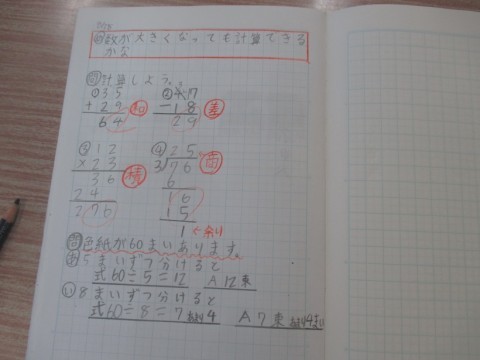 め 数が大きくなっても計算できる
かな
問 計算しよう。
① 35
+ 29
64 和
② 47
- 18
29 差
③ 12
× 23
36
24
276 積
④ 25
3)76 商
6
16
15
1 ←余り
問 色紙が60まいあります。
あ 5まいずつ分けると
式60÷5=12 A 12束
い 8まいずつ分けると
式60÷8=7あまり4 A 7束あまり4まい